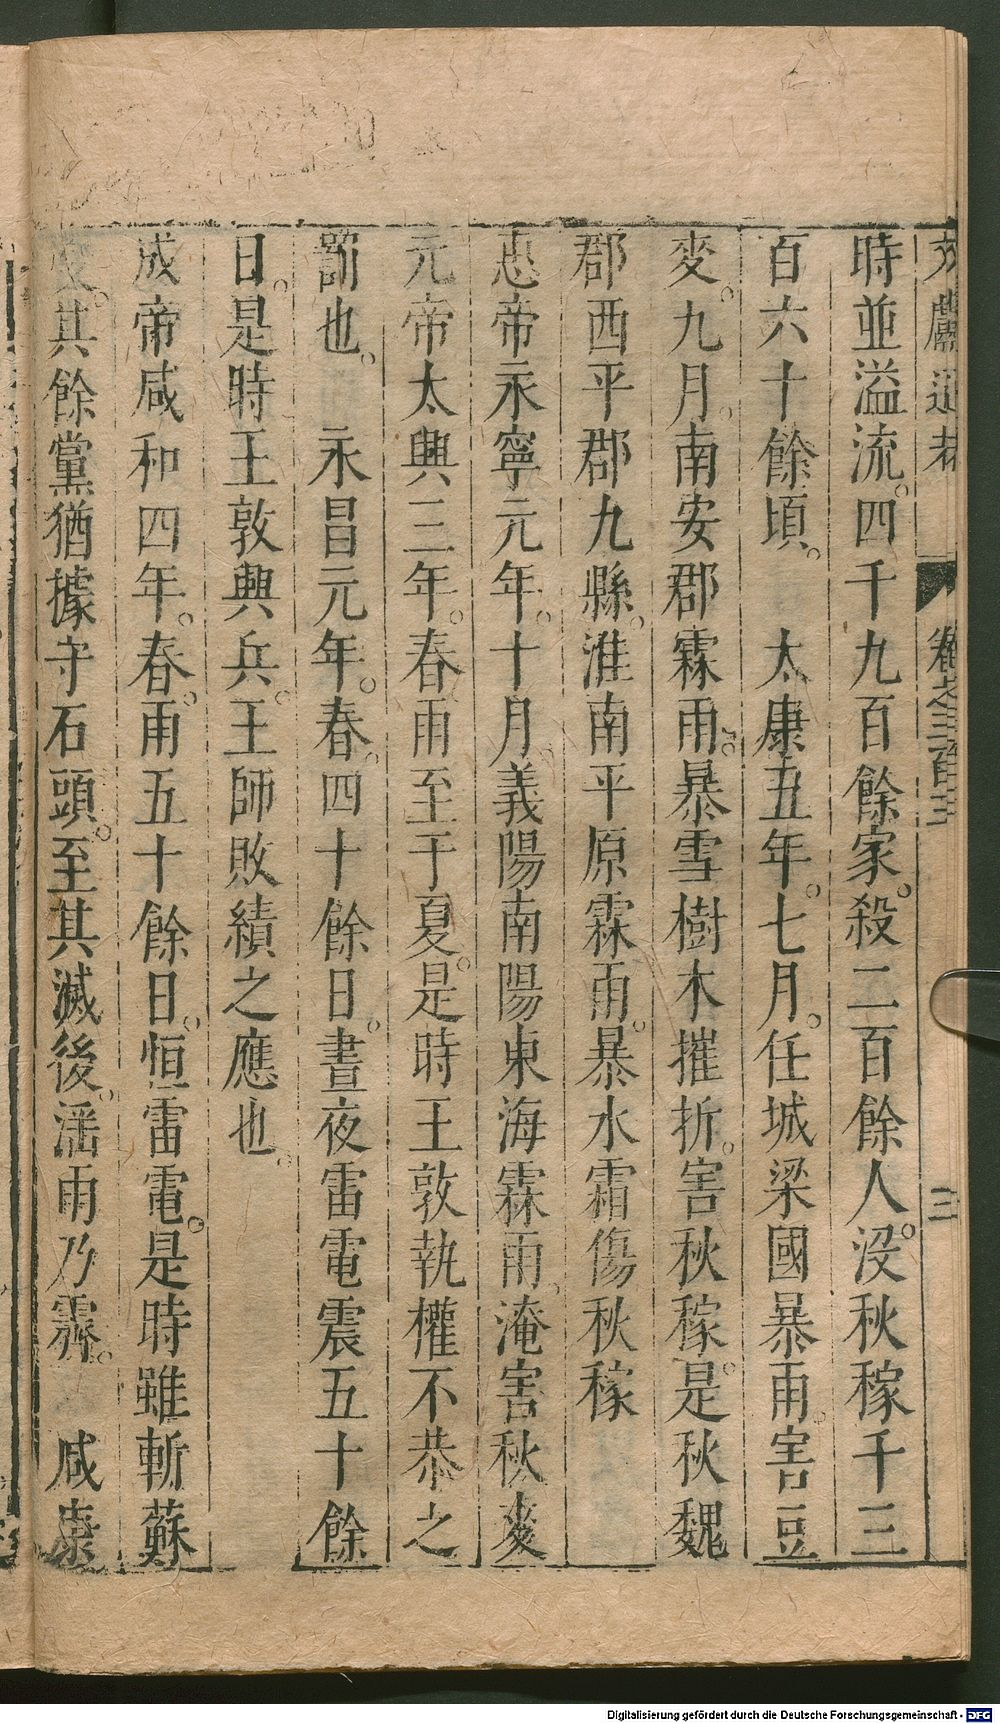 文獻通考 卷之三百三 三
時並溢流。四千九百餘家。殺二百餘人。没秋稼千三
百六十餘頃。 太康五年。七月。任城梁國暴雨。害豆
麥。九月。南安郡霖雨。暴雪樹木摧折。害秋稼。是秋魏
郡西平郡九縣。淮南平原霖雨。暴水霜傷秋稼
惠帝永寧元年。十月。義陽南陽東海霖雨。淹害秋麥
元帝太興三年。春雨至于夏。是時王敦執權不恭之
罰也。 永昌元年。春。四十餘日。晝夜雷電震五十餘
日。是時王敦興兵。王師敗績之應也。
成帝咸和四年。春。雨五十餘日。恒雷電。是時雖斬蘇
其餘黨猶據守石頭。至其滅後。淫雨乃霽。 咸康
Digitalisierung gefördert durch die Deutsche Forschungsgemeinschaft - DFG